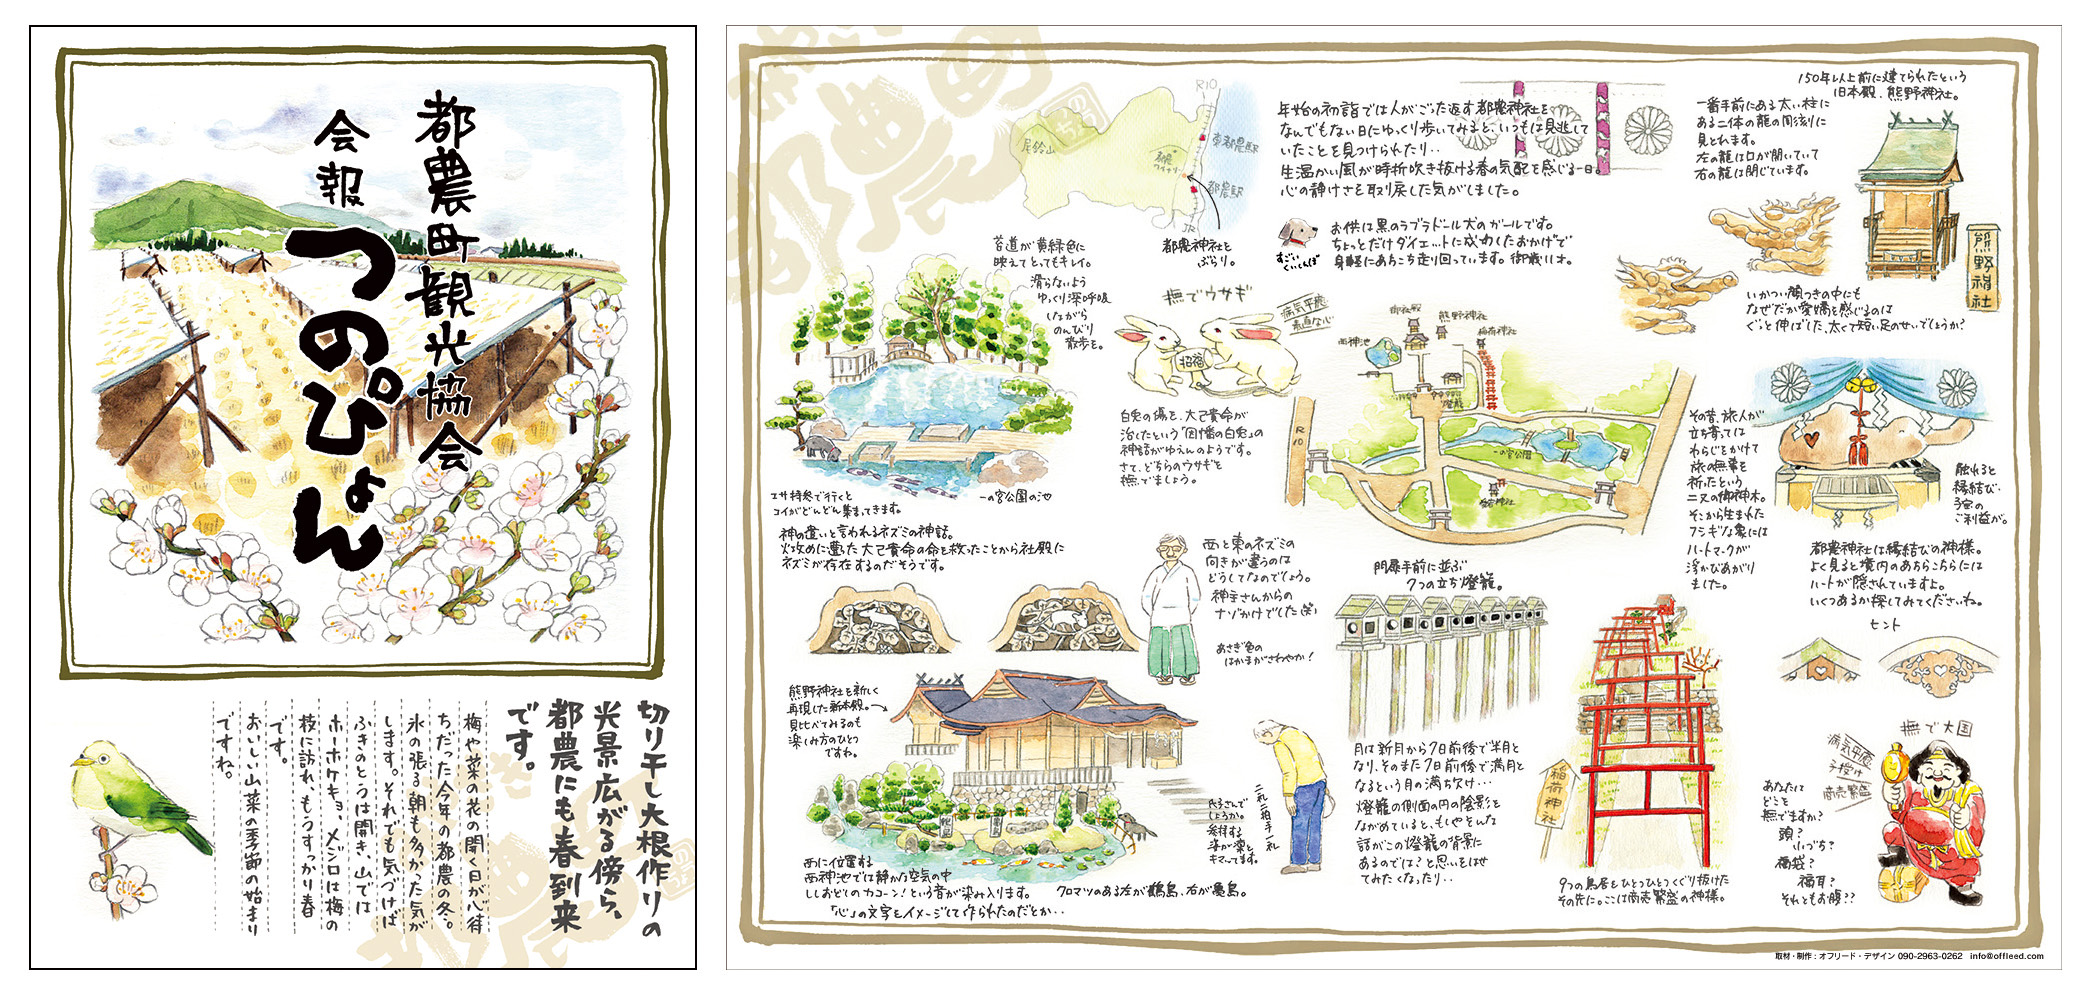 都農町観光協会
会報
つのぴょん
切り干し大根作りの
光景広がる傍ら、
都農にも春到来
です。
梅や菜の花の開く日が心待
ちだった今年の都農の冬。
氷の張る朝も多かった気が
します。それでも気づけば
ふきのとうは開き、山では
ホーホケキョ、メジロは梅の
枝に訪れ、もうすっかり春
です。
おいしい山菜の季節の始まり
ですね。
R10
尾鈴山
つの
東都農駅
都農
ワイナリー
都農駅
JR
都農神社を
ぶらり。
年始の初詣では人がごった返す都農神社を
なんでもない日にゆっくり歩いてみると、いつもは見逃して
いたことを見つけられたり・・
生温かい風が時折吹き抜ける春の気配を感じる一日。
心の静けさを取り戻した気がしました。
お供は黒のラブラドール犬のガールです。
ちょっとだけダイエットに成功したおかげで
身軽にあちこち走り回っています。御歳11才。
すごい
くいしんぼ
150年以上前に建てられたという
旧本殿、熊野神社。
一番手前にある太い柱に
ある二体の龍の彫刻に
見とれます。
左の龍は口が開いていて
右の龍は閉じています。
熊野神社
いかつい顔つきの中にも
なぜだか愛嬌を感じるのは
ぐっと伸ばした、太くて短い足のせいでしょうか?
苔道が黄緑色に
映えてとってもキレイ。
滑らないよう
ゆっくり深呼吸
しながら
のんびり
散歩を。
エサ持参で行くと
コイがどんどん集まってきます。
一の宮公園の池
撫でウサギ
病気平癒
素直な心
招福
白兎の傷を、大己貴命が
治したという「因幡の白兎」の
神話がゆえんのようです。
さて、どちらのウサギを
撫でましょう。
御社殿
熊野神社
稲荷神社
西神池
燈籠
R10
一の宮公園
愛宕神社
その昔、旅人が
立ち寄っては
わらじをかけて
旅の無事を
祈ったという
二又の御神木。
そこから生まれた
フシギな象には
ハートマークが
浮かびあがり
ました。
触れると
縁結び、
子宝の
ご利益が。
都農神社は縁結びの神様。
よく見ると境内のあちらこちらには
ハートが隠されていますよ。
いくつあるか探してみてくださいね。
ヒント
神の遣いと言われるネズミの神話。
火攻めに遭った大己貴命の命を救ったことから社殿に
ネズミが存在するのだそうです。
西と東のネズミの
向きが違うのは
どうしてなのでしょう。
神主さんからの
ナゾかけでした(笑)
あさぎ色の
はかまがさわやか!
門扉手前に並ぶ
7つの立ち燈籠。
月は新月から7日前後で半月と
なり、そのまた7日前後で満月と
なるという月の満ち欠け・・・
燈籠の側面の円の陰影を
ながめていると、もしやそんな
話がこの燈籠の背景に
あるのでは?と思いをはせ
てみたくなったり・・
熊野神社を新しく
再現した新本殿。
見比べてみるのも
楽しみ方のひとつ
ですね。
西に位置する
西神池では静かな空気の中
ししおどしのカコーン!という音が染み入ります。
クロマツのある左が鶴島、右が亀島。
「心」の文字をイメージして作られたのだとか・・
氏子さんで
しょうか。
参拝する
姿が凛と
キマってます。
二礼二拍手一礼
稲荷神社
9つの鳥居をひとつひとつくぐり抜けた
その先に。ここは商売繁盛の神様。
撫で大国
病気平癒
子授け
商売繁盛
あなたは
どこを
撫でますか?
頭?
小づち?
福袋?
福耳?
それともお腹??
取材・制作:オフリード・デザイン 090-2963-0262 info@offleed.com